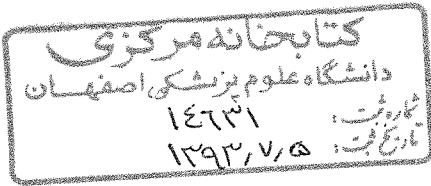 کتابخانه مرکزی
دانشگاه علوم پزشکی اصفهان
شماره ثبت: ۱۴۶۳۱
تاریخ ثبت: ۱۳۹۳٫۷٫۵